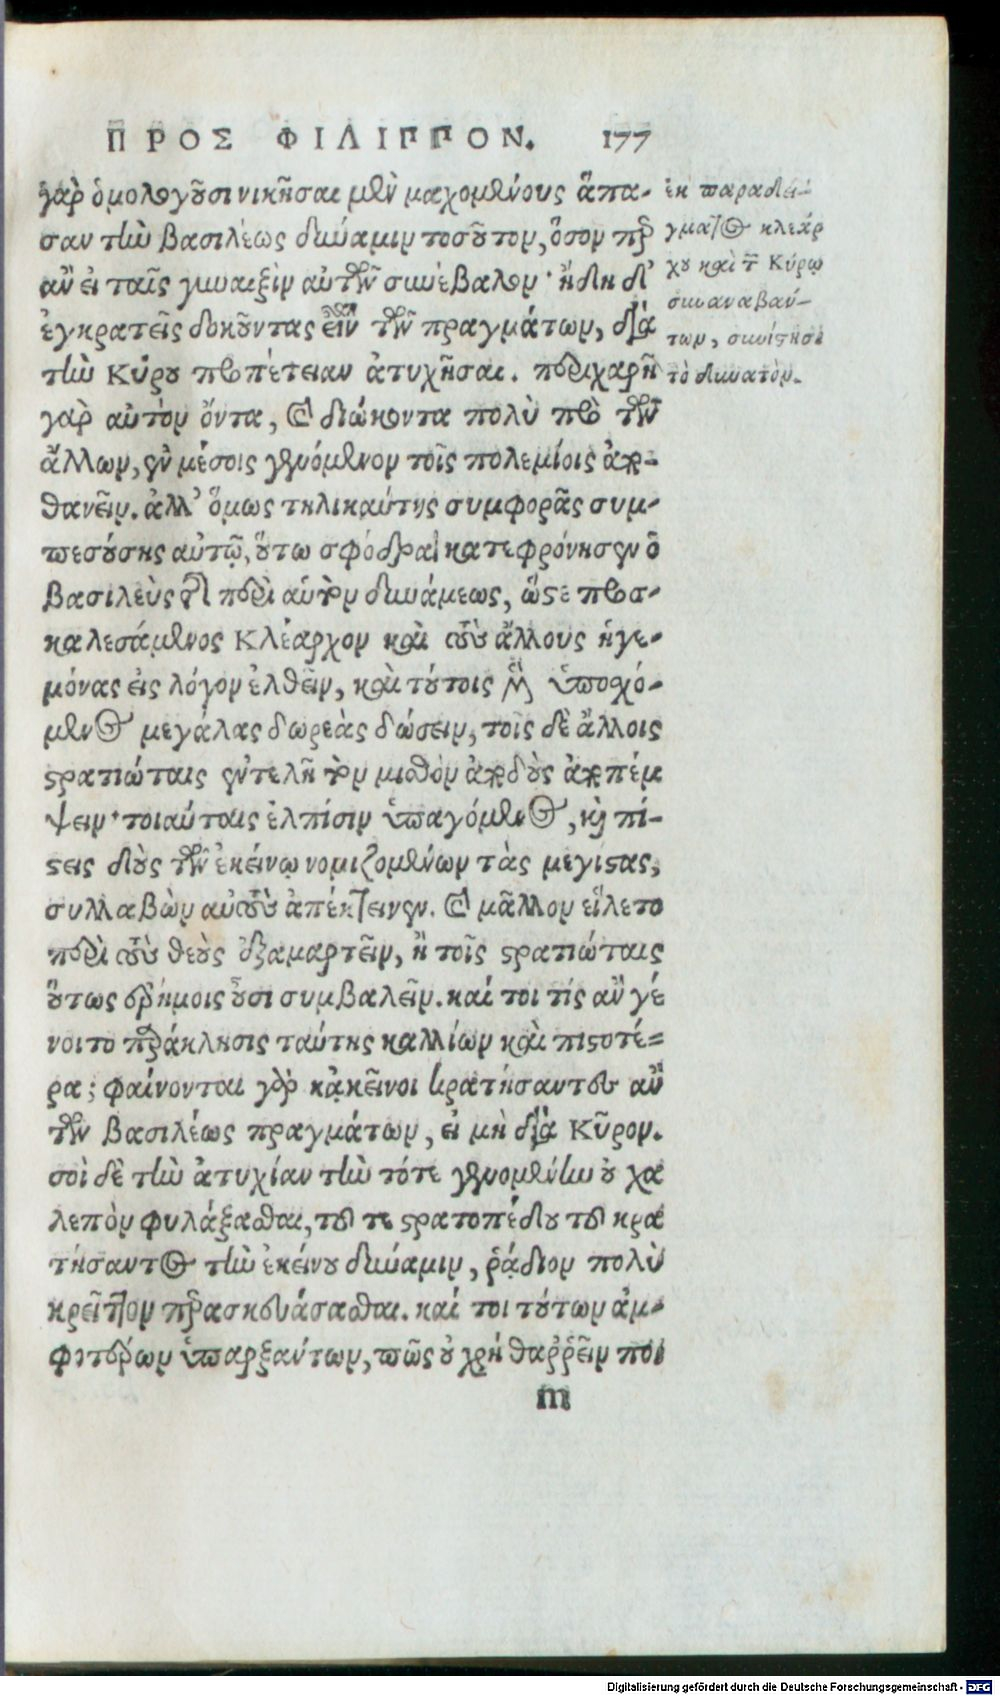 ΠΡΟΣ ΦΙΛΙΠΠΟΝ. 177
γὰρ ὁμολογοῦσι νικῆσαι μὲν μαχομένους ἅπα-
σαν τὴν βασιλέως δύναμιν τοσοῦτον, ὅσον παρ
ἂν εἰ ταῖς γυναιξὶν αὐτῶν συνέβαλον· ἤδη δ'
ἐγκρατεῖς δοκοῦντας εἶναι τῶν πραγμάτων, διὰ
τὴν Κύρου προπέτειαν ἀτυχῆσαι. περιχαρῆ
γὰρ αὐτὸν ὄντα, καὶ διώκοντα πολὺ πρὸ τῶν
ἄλλων, ἐν μέσοις γενόμενον τοῖς πολεμίοις ἀπο-
θανεῖν. ἀλλ' ὅμως τηλικαύτης συμφορᾶς συμ-
πεσούσης αὐτῷ, οὕτω σφόδρα κατεφρόνησεν ὁ
βασιλεὺς τῆς περὶ αὑτὸν δυνάμεως, ὥστε προσ-
καλεσάμενος Κλέαρχον καὶ τοὺς ἄλλους ἡγε-
μόνας εἰς λόγον ἐλθεῖν, καὶ τούτοις μὲν ὑποσχό-
μενος μεγάλας δωρεὰς δώσειν, τοῖς δὲ ἄλλοις
στρατιώταις ἐντελῆ τὸν μισθὸν ἀποδοὺς ἀποπέμ
ψειν· τοιαύταις ἐλπίσιν ὑπαγόμενος, καὶ πί-
στεις δοὺς τῶν ἐκείνῳ νομιζομένων τὰς μεγίστας,
συλλαβὼν αὐτοὺς ἀπέκτεινεν. καὶ μᾶλλον εἵλετο
περὶ τοὺς θεοὺς ἐξαμαρτεῖν, ἢ τοῖς στρατιώταις
οὕτως ἐρήμοις οὖσι συμβαλεῖν. καί τοι τίς ἂν γέ
νοιτο παράκλησις ταύτης καλλίων καὶ πιστοτέ=
ρα; φαίνονται γὰρ κἀκεῖνοι κρατήσαντες ἂν
τῶν βασιλέως πραγμάτων, εἰ μὴ διὰ Κῦρον.
σοὶ δὲ τὴν ἀτυχίαν τὴν τότε γενομένην οὐ χα
λεπὸν φυλάξασθαι, τοῦ τε στρατοπέδου τοῦ κρα
τήσαντος τὴν ἐκείνου δύναμιν, ῥᾴδιον πολὺ
κρεῖττον παρασκευάσασθαι. καί τοι τούτων ἀμ-
φοτέρων ὑπαρξάντων, πῶς οὐ χρὴ θαῤῥεῖν ποι
m
ἐκ παραδεί-
γματος κλεάρ
χου καὶ τ̄ Κύρῳ
συναναβάν-
των, συνίστησι
τὸ δυνατὸν.
Digitalisierung gefördert durch die Deutsche Forschungsgemeinschaft - DFG